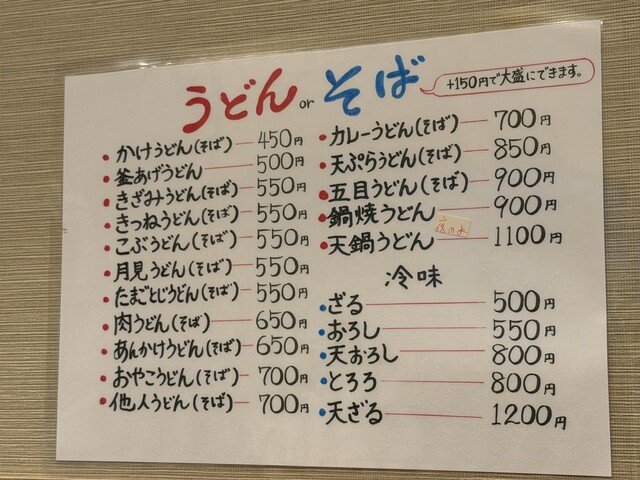 うどん or そば
+150円で大盛にできます。
かけうどん(そば) 450円
釜あげうどん 500円
きざみうどん(そば) 550円
きつねうどん(そば) 550円
こぶうどん(そば) 550円
月見うどん(そば) 550円
たまごとじうどん(そば) 550円
肉うどん(そば) 650円
あんかけうどん(そば) 650円
おやこうどん(そば) 700円
他人うどん(そば) 700円
カレーうどん(そば) 700円
天ぷらうどん(そば) 850円
五目うどん(そば) 900円
鍋焼うどん 900円
天鍋うどん 1100円
冷味
ざる 500円
おろし 550円
天おろし 800円
とろろ 800円
天ざる 1200円